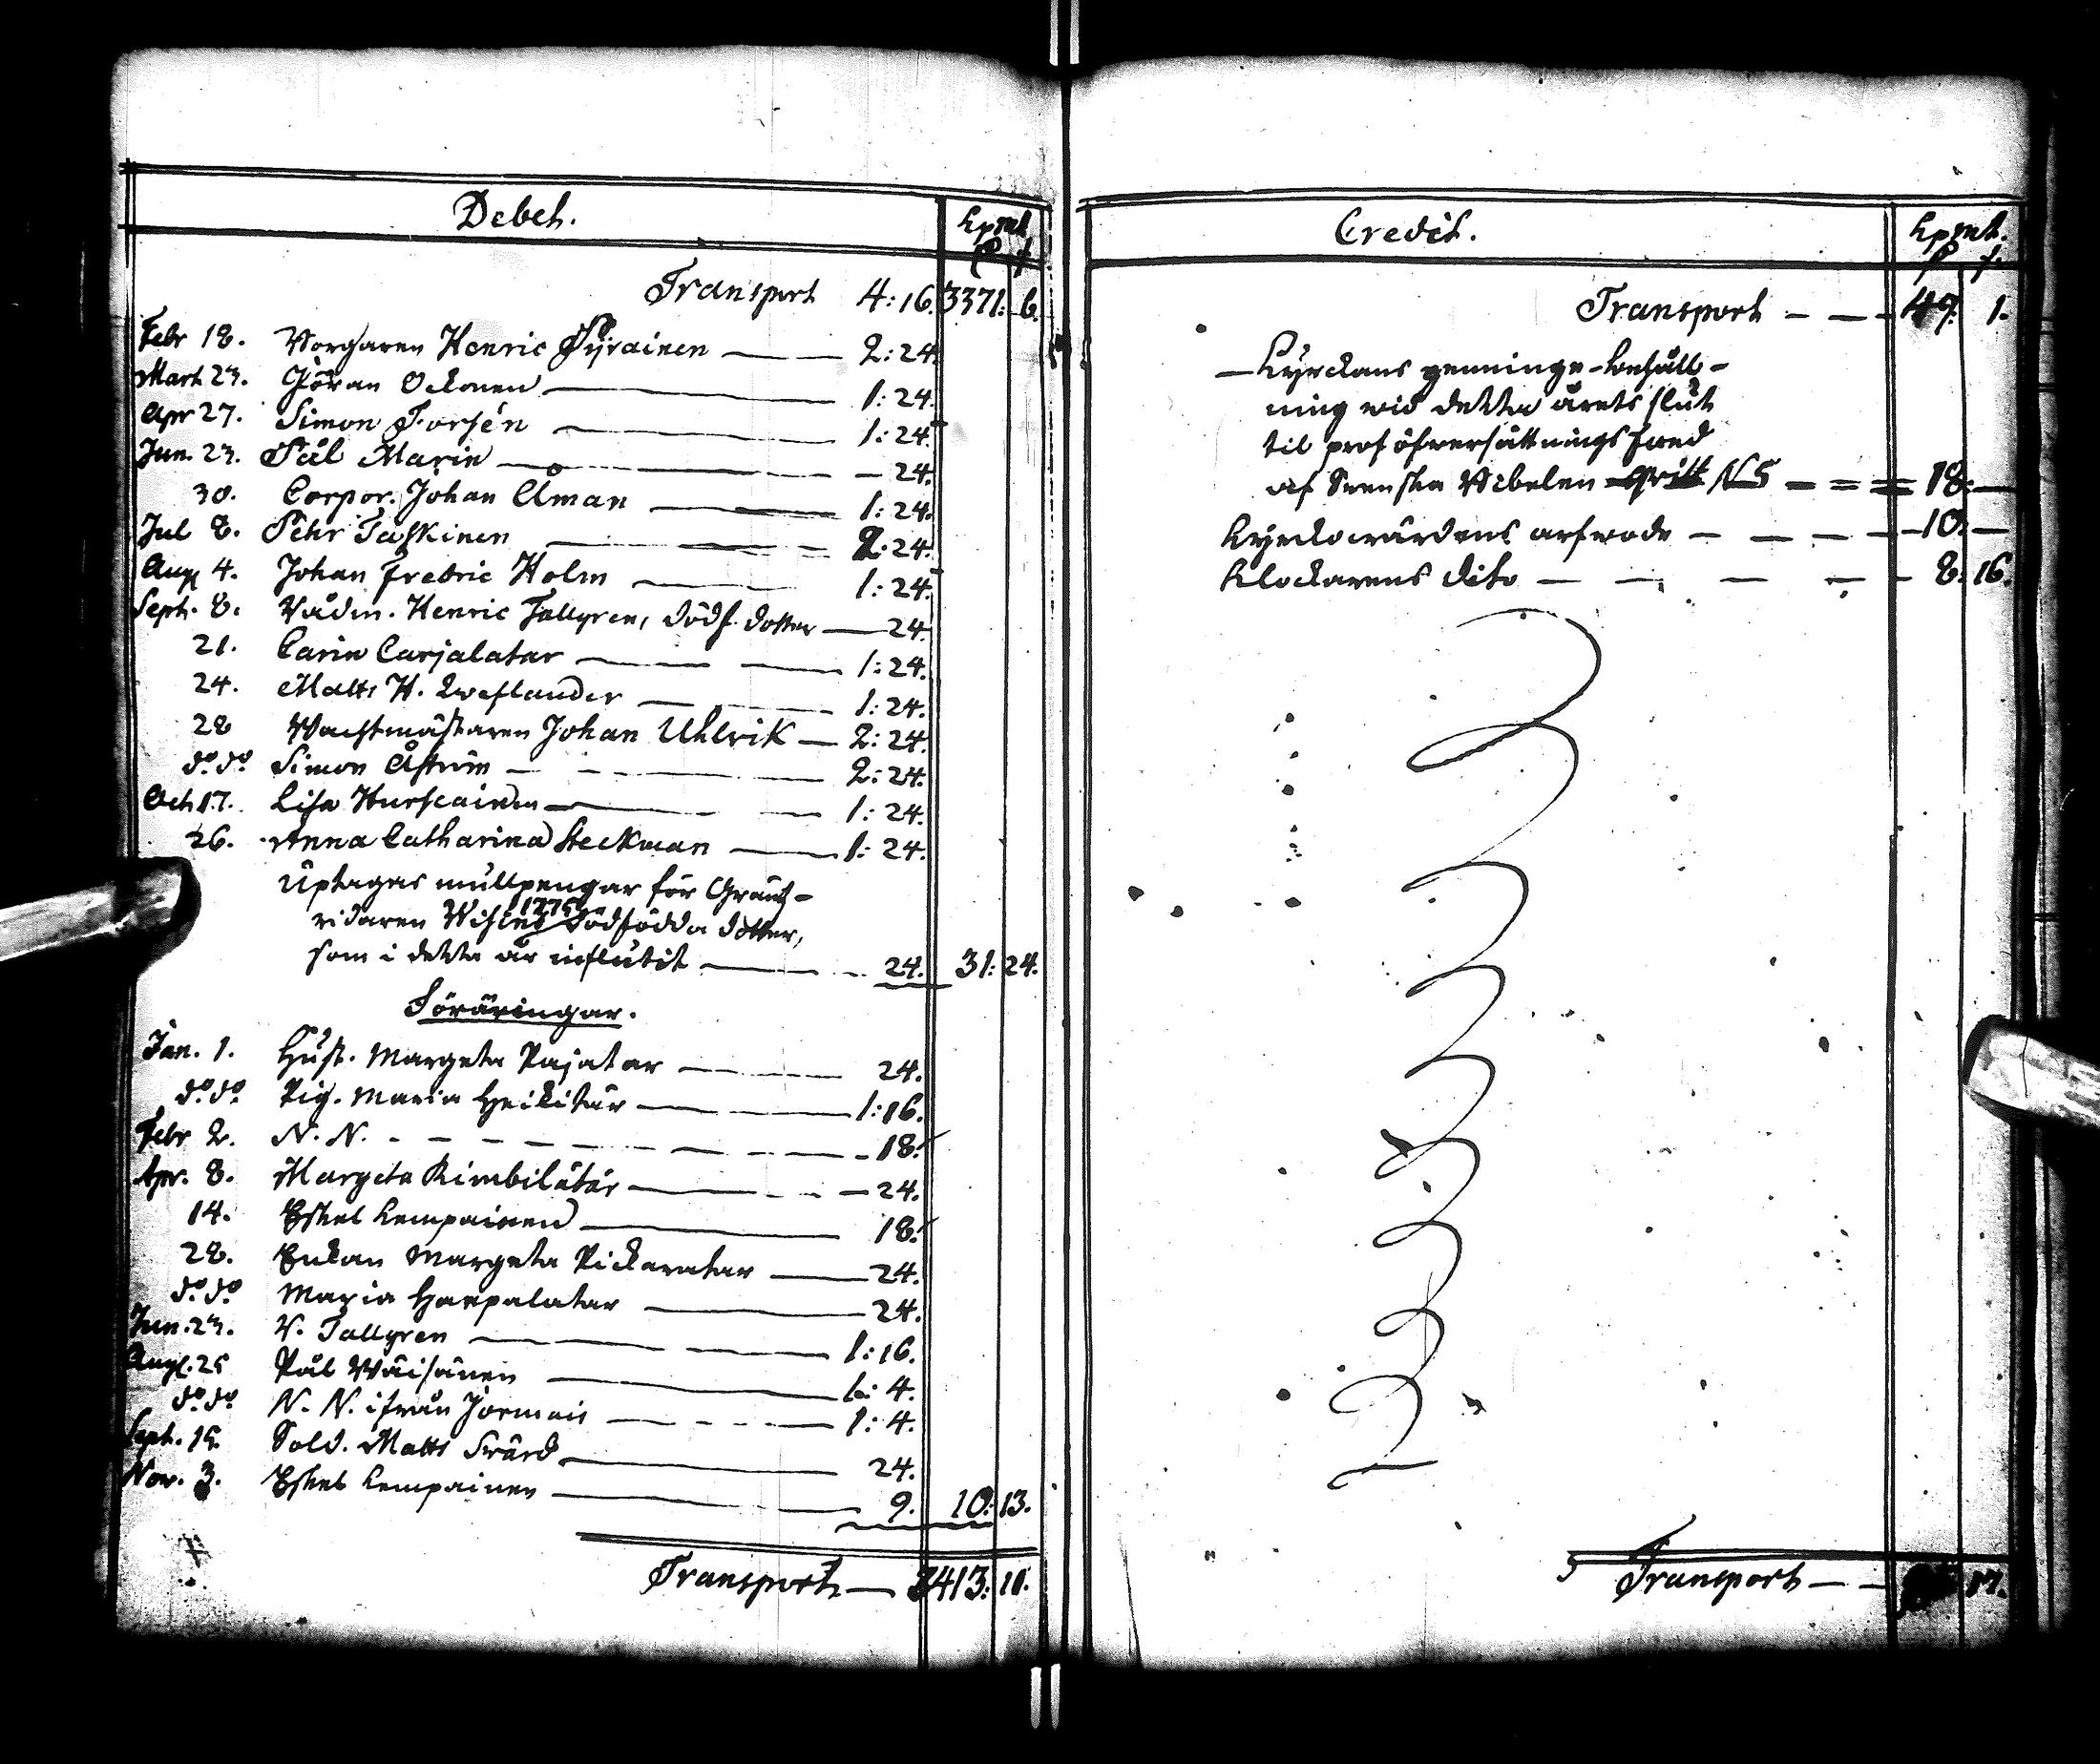 Debet.
Kpmt
Transport 4:16. 3371: 6.
Febr 18. Borgaren Henric Pyrainen 2:24.
Mart. 23. Jöran Ockonen 1:24.
Apr 27. Simon Forsén 1:24.
Jun. 23. Pål Marin 24.
30. Corpor. Johan Åman 1:24.
Jul 8. Pehr Taskinen 2.24.
Aug 4. Johan Fredric Holm 1:24.
Sept. 8. Rådm. Henric Tallgren, dödf. dotter 24.
21. Carin Carjalatar 1:24.
24. Matts H. Kveflander 1:24.
28 Wachtmästaren Johan Uhlrik 2:24.
do. do. Simon Åström 2:24.
Oct 17. Lisa Hurskainen 1:24.
26. Anna Catharina Steckman 1:24.
Uptages mullpengar för Gräns-
1775
ridaren dödfödda dotter,
som i detta år influtit 24. 31: 24.
Föräringar.
Jan. 1. Hust. Margeta Pajatar 24.
do. do. Pig. Maria Heikitär 1:16.
Febr 2. N. N. 18.
Apr. 8. Margeta Kimbilätär 24.
14. Eskel Kempainen 18.
28. Enkan Margeta Pickaratar 24.
do. do. Maria Harpalatar 24.
Jun. 23. V. Tallgren 1:16.
Aug. 25 Pål Wäisänen 1: 4.
do. do. N. N. ifrån Jormais 1: 4.
Sept. 15. Sold. Matts Svärd 24.
Nov. 3. Eskel Kempainen 9. 10: 13.
Transport 3413: 11.
Credit.
Kpmt.
Transport 49. 1.
Kyrckans penninge-behåll-
ning vid detta årets slut
til prof öfversättnings
af Svenska Bibelen qvitt N 5 18:
Kyrckowärdens arfvode 10:
Klockarens dito 8: 16.
Transport 17.